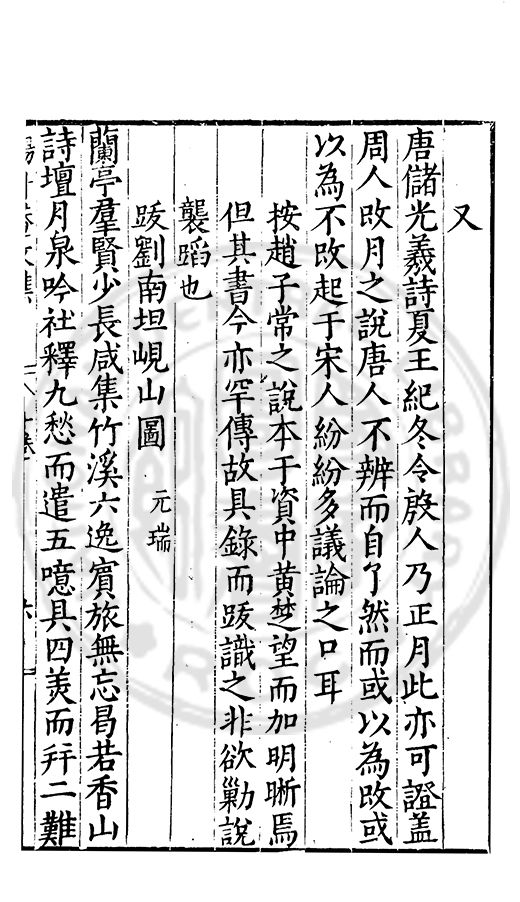 又
唐儲光羲詩夏王紀冬令殷人乃正月此亦可證蓋
周人改月之說唐人不辨而自了然而或以為改或
以為不改起于宋人紛紛多議論之口耳
按趙子常之說本于資中黃楚望而加明晰焉
但其書今亦罕傳故具錄而跋識之非欲勦說
襲蹈也
跋劉南坦峴山圖 元瑞
蘭亭羣賢少長咸集竹溪六逸賓旅無忘曷若香山
詩壇月泉吟社釋九愁而遣五噫具四美而并二難